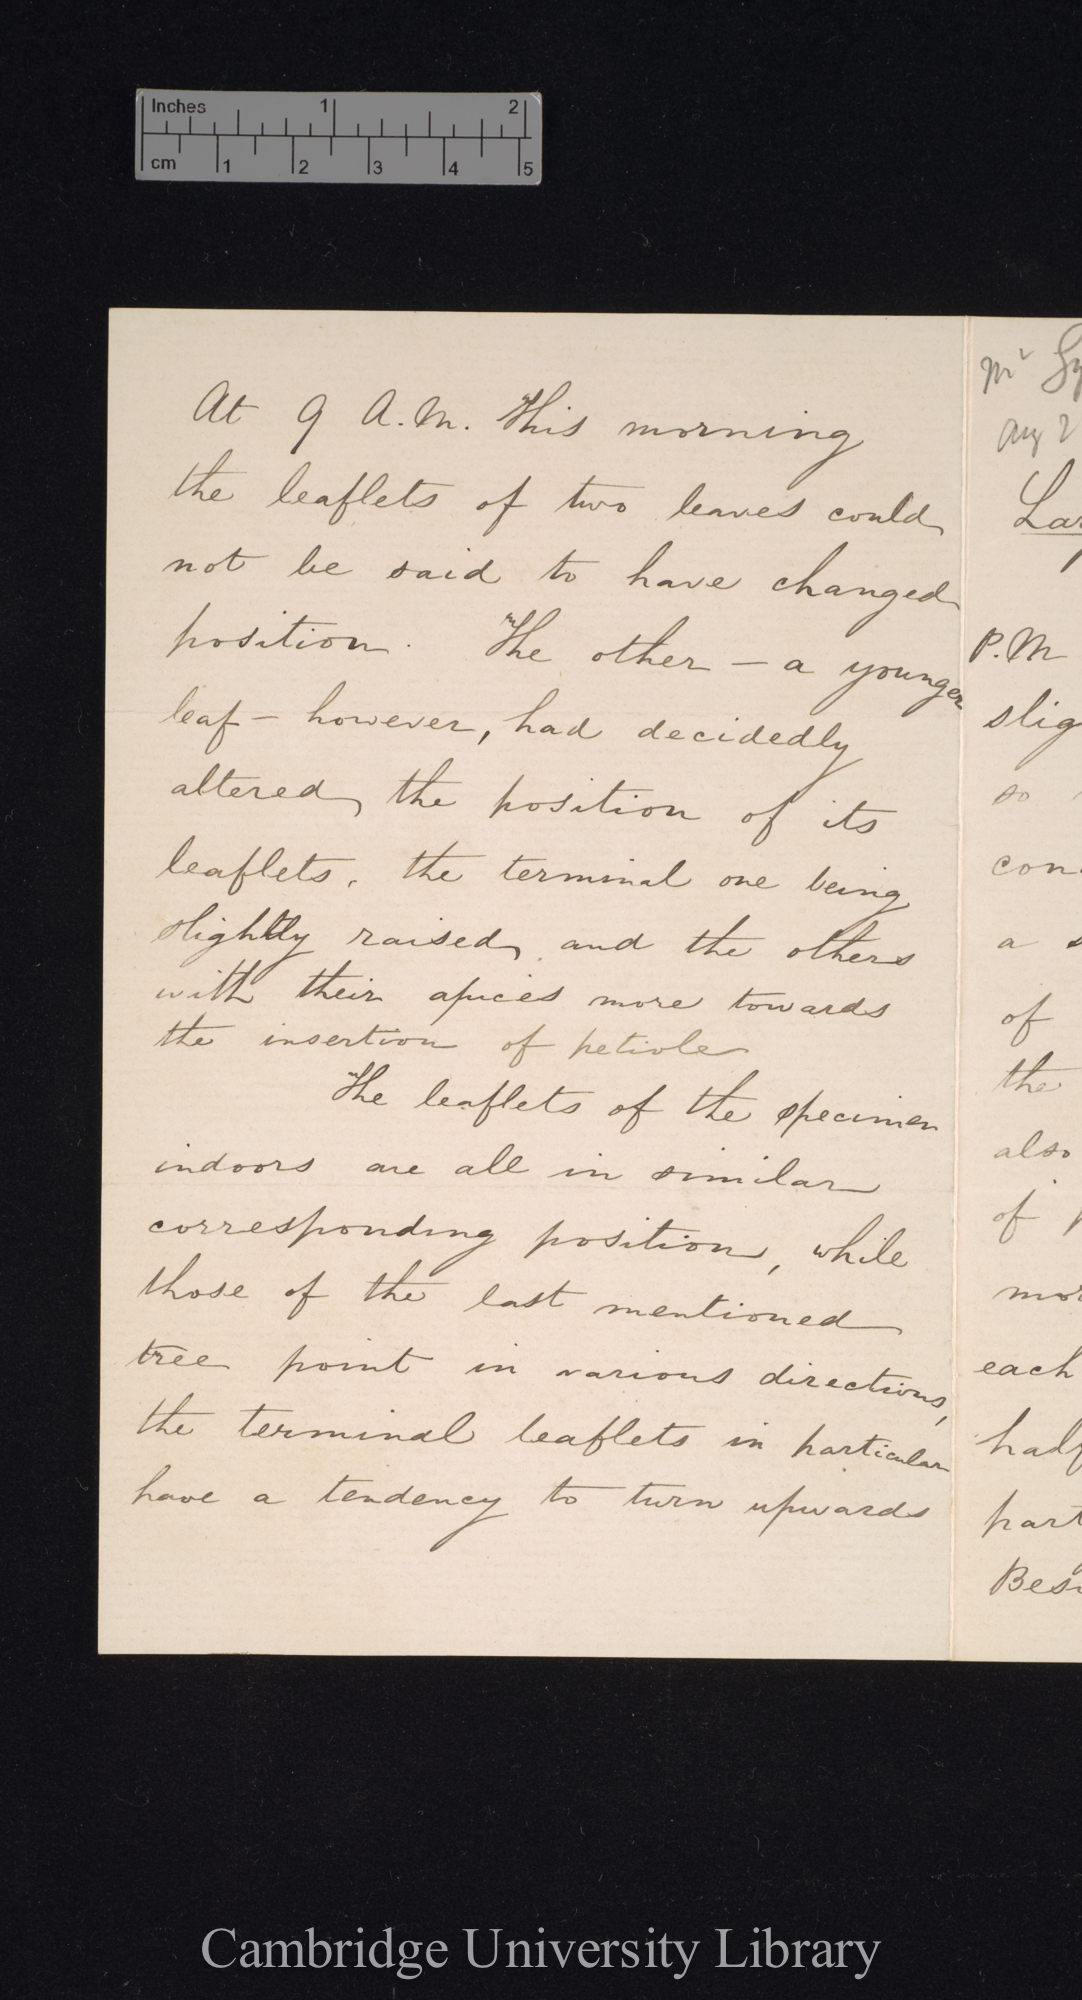 Inches 1 2
cm 1 2 3 4 5
At 9 A.M. This morning
the leaflets of two leaves could
not be said to have changed
position. The other – a younger
leaf – however, had decidedly
altered the position of its
leaflets, the terminal one being
slightly raised, and the others
with their apices more towards
the insertion of petiole
The leaflets of the specimen
indoors are all in similar
corresponding position, while
those of the last mentioned
tree point in various directions,
the terminal leaflets in particular
have a tendency to turn upwards
Mr
Aug 2
P.M
so
a
of
the
also
of
each
Cambridge University Library